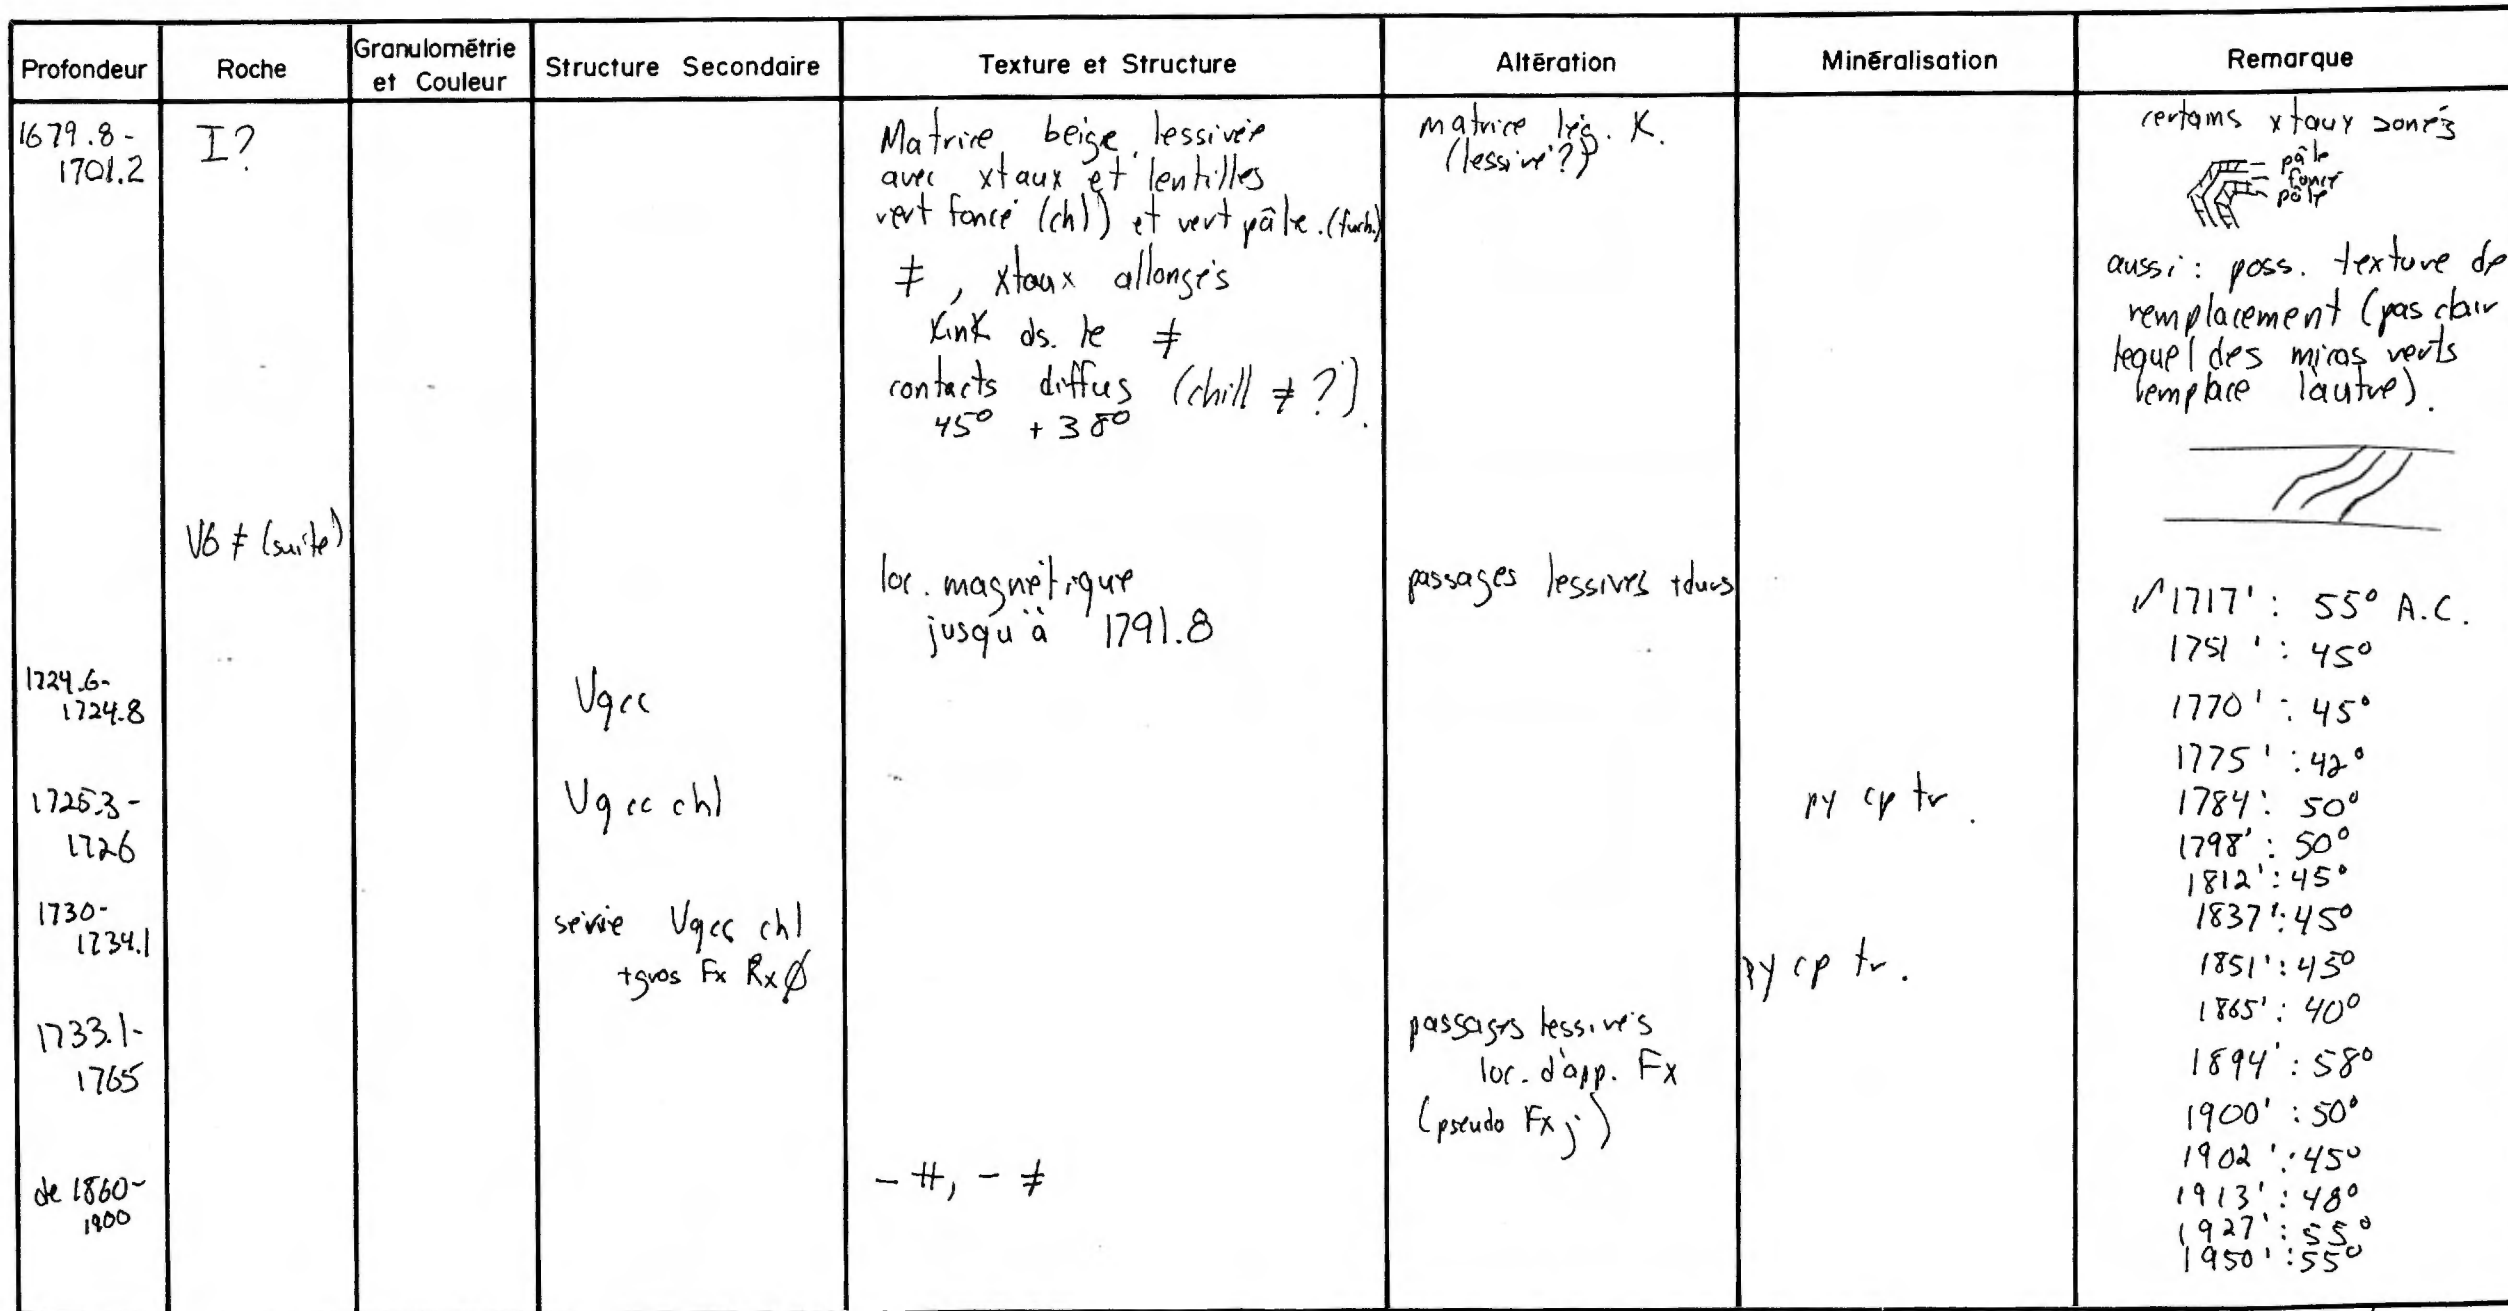 Profondeur
Roche
Granulométrie
et Couleur
Structure Secondaire
Texture et Structure
Altération
Minéralisation
Remarque
1679.8 -
1701.2
I?
Matrice beige lessivée
avec xtaux et lentilles
vert foncé (chl) et vert pâle. (fuch.)
≠, xtaux allongés
Kink ds. le ≠
contacts diffus (chill ≠ ?).
45° + 38°
matrice lég. K.
(lessivé?)
certains xtaux zonés
pâle
foncé
pâle
aussi: poss. texture de
remplacement (pas clair
lequel des micas verts
remplace l'autre).
V6 ≠ (suite)
loc. magnétique
jusqu'à 1791.8
passages lessivés +durs
1717': 55° A.C.
1751': 45°
1724.6-
1724.8
Vqcc
1770': 45°
1775': 42°
1725.3-
1726
Vqcc chl
py cp tr.
1784': 50°
1798': 50°
1812': 45°
1730-
1734.1
série Vqcc chl
+gros Fx Rx Ø
py cp tr.
1837': 45°
1851': 45°
1865': 40°
1733.1-
1765
passages lessivés
loc. d'app. Fx
(pseudo Fx j)
1894': 58°
1900': 50°
1902': 45°
de 1860-
1900
- #, - ≠
1913': 48°
1927': 55°
1950': 55°